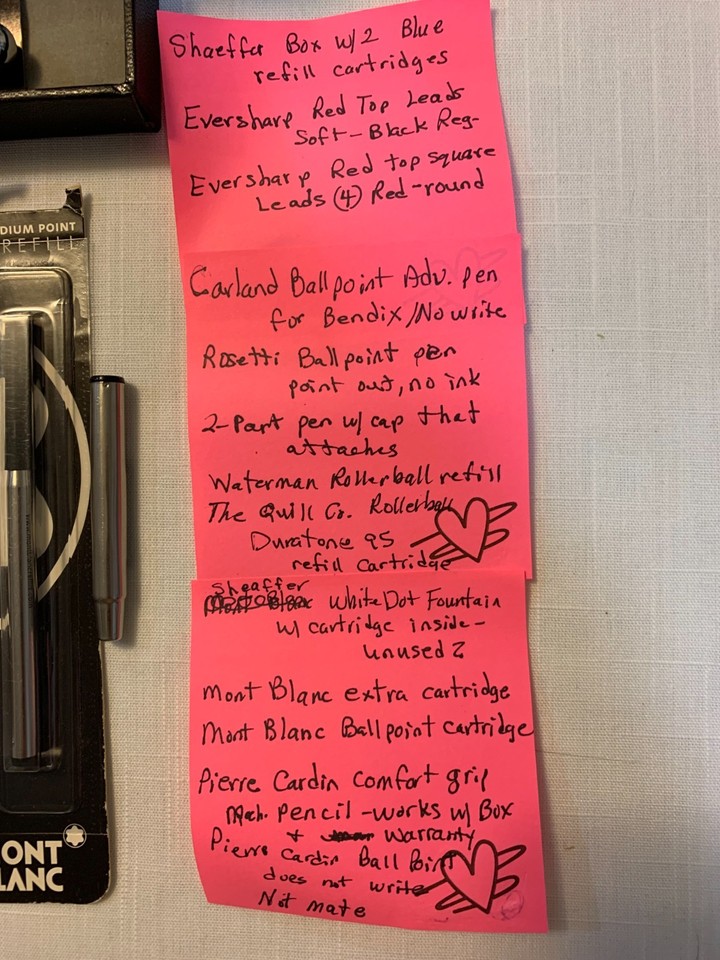 Shaeffer Box w/2 Blue
refill cartridges
Eversharp Red Top Leads
Soft-Black Reg-
Eversharp Red top square
Leads (4) Red-round
Garland Ballpoint Adv. pen
for Bendix/No write
Rosetti Ballpoint pen
point out, no ink
2-Part pen w/ cap that
attaches
Waterman Rollerball refill
The Quill Co. Rollerball
Duratone 95
refill Cartridge
Sheaffer
White Dot Fountain
w/ cartridge inside-
unused ?
Mont Blanc extra cartridge
Mont Blanc Ballpoint cartridge
Pierre Cardin comfort grip
Mech. Pencil - works w/ Box
+ Warranty
Pierre Cardin Ball Point
does not write
Not mate
DIUM POINT
REFILL
ONT
LANC